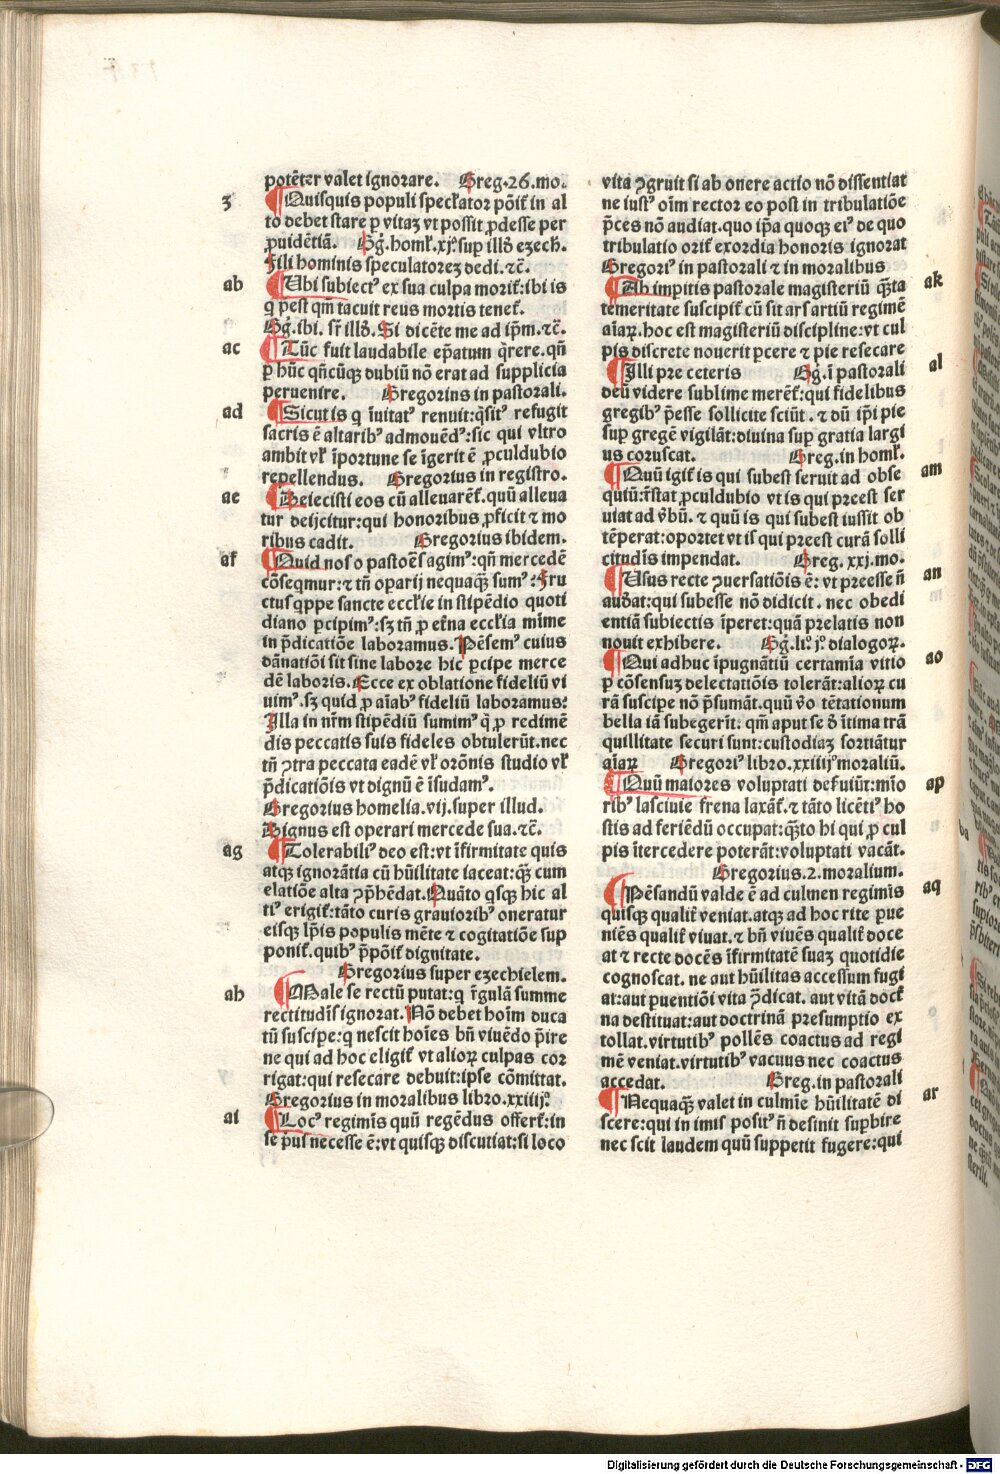 potēter valet ignorare. Greg.26.mo.
z ¶Quisquis populi spectator pōit᷑ in al
to debet stare ꝑ vitaꝫ vt possit ꝓdesse per
ꝓuidētiā. Gḡ.homl᷑.xj.suꝑ illḋ ezech.
Fili hominis speculatoreꝫ dedi.⁊c̄.
ab ¶Ubi subiectꝰ ex sua culpa morit᷑:ibi is
q p̄est qm̄ tacuit reus mortis tenet᷑.
Gḡ.ibi. sr̄ illḋ. Si dicēte me ad ip̄m.⁊c̄.
ac ¶Tūc fuit laudabile ep̄atum q̄rere.qn̄
ꝑ hūc qn̄cūqꝫ dubiū nō erat ad supplicia
peruenire. Gregorius in pastorali.
ad ¶Sicut is q īuitatꝰ renuit:q̄sitꝰ refugit
sacris ē altaribꝰ admouēdꝰ:sic qui vltro
ambit vl᷑ īportune se īgerit ē ꝓculdubio
repellendus. Gregorius in registro.
ae ¶Deiecisti eos cū alleuarēt᷑.quū alleua
tur deijcitur:qui honoribus ꝓficit ⁊ mo
ribus cadit. Gregorius ibidem.
af ¶Quid nos o pastoēs agimꝰ:qn̄ mercedē
cōseq̄mur:⁊ tn̄ oꝑarij nequaqꝫ sumꝰ:Fru
ctus q̄ppe sancte eccl᷑ie in stipēdio quoti
diano ꝑcipimꝰ:sꝫ tn̄ ꝓ et̄na eccl᷑ia mīme
in p̄dicatiōe laboramus. Pēsemꝰ cuius
dānatiōi sit sine labore hic ꝑcipe merce
dē laboris. Ecce ex oblatione fideliū vi
uimꝰ.sꝫ quid ꝓ aīabꝰ fideliū laboramus:
Illa in nr̄m stipēdiū sumimꝰ q̄ ꝓ redimē
dis peccatis suis fideles obtulerūt.nec
tn̄ ꝯtra peccata eadē vl᷑ orōnis studio vl᷑
p̄dicatiōis vt dignū ē īsudamꝰ.
Gregorius homelia.vij.super illud.
Dignus est operari mercede sua.⁊c̄.
ag ¶Tolerabiliꝰ deo est:vt īfirmitate quis
atqꝫ ignorātia cū hūilitate iaceat:qꝫ cum
elatiōe alta ꝯp̄hēdat. Quāto q̄sqꝫ hic al
tiꝰ erigit᷑:tāto curis grauioribꝰ oneratur
eisqꝫ ip̄is populis mēte ⁊ cogitatiōe suꝑ
ponit᷑.quibꝰ p̄pōit᷑ dignitate.
Gregorius super ezechielem.
ah ¶Male se rectū putat:q īgulā summe
rectitudīs ignorat. Nō debet hoīm duca
tū suscipe:q nescit hoīes bn̄ viuēdo p̄ire
ne qui ad hoc eligit᷑ vt alioꝝ culpas cor
rigat:qui resecare debuit:ipse cōmittat.
Gregorius in moralibus libro.xxiiijº
ai ¶Locꝰ regimīs quū regēdus offert᷑:in
se pͥus necesse ē:vt quisqꝫ discutiat:si loco
vita ꝯgruit si ab onere actio nō dissentiat
ne iustꝰ oīm rector eo post in tribulatiōe
p̄ces nō audiat.quo ip̄a quoqꝫ eiꝰ de quo
tribulatio orit᷑ exordia honoris ignorat
Gregoriꝰ in pastorali ⁊ in moralibus
ak ¶Ab impitis pastorale magisteriū q̄ta
temeritate suscipit᷑ cū sit ars artiū regimē
aīaꝝ.hoc est magisteriū discipline:vt cul
pis discrete nouerit ꝑcere ⁊ pie resecare
al ¶Illi pre ceteris Gḡ.ī pastorali
deū videre sublime merēt᷑:qui fidelibus
gregibꝰ p̄esse sollicite sciūt. ⁊ dū ip̄i pie
suꝑ gregē vigilāt:diuina suꝑ gratia largi
us coruscat. Greg.in homl᷑.
am ¶Quū igit᷑ is qui subest seruit ad obse
quiū:r̄stat ꝓculdubio vt is qui preest ser
uiat ad v̄bū. ⁊ quū is qui subest iussit ob
tēperat:oportet vt is qui preest curā solli
citudīs impendat. Greg. xxj.mo.
an ¶Usus recte ꝯuersatiōis ē: vt preesse n̄
auḋat:qui subesse nō didicit. nec obedi
entiā subiectis īperet:quā prelatis non
nouit exhibere. Gḡ.liº.jº.dialogoꝝ.
ao ¶Qui adhuc īpugnātiū certamīa vitio
ꝑ cōsensuꝫ delectatiōis tolerāt:alioꝝ cu
rā suscipe nō p̄sumāt.quū v̄o tētationum
bella iā subegerīt. qm̄ aput se ḋ ītima trā
quillitate securi sunt:custodiaꝫ sortiātur
aīaꝝ Gregoriꝰ libro.xxiiijº moraliū.
ap ¶Quū maiores voluptati deẜuiūt:mīo
ribꝰ lasciuie frena laxāt᷑.⁊ tāto licētiꝰ ho
stis ad feriēdū occupat:q̄ꝫto hi qui ꝓ cul
pis ītercedere poterāt:voluptati vacāt.
Gregorius.2.moralium.
aq ¶Pēsandū valde ē ad culmen regimīs
quisqꝫ qualit᷑ veniat.atqꝫ ad hoc rite ꝑue
niēs qualit᷑ viuat.⁊ bn̄ viuēs qualit᷑ doce
at ⁊ recte docēs īfirmitatē suaꝫ quotidie
cognoscat. ne aut hūilitas accessum fugi
at:aut ꝑuentiōi vita ꝯdicat. aut vitā doct᷑
na destituat:aut doctrinā presumptio ex
tollat.virtutibꝰ pollēs coactus ad regi
mē veniat.virtutibꝰ vacuus nec coactus
accedat. Greg.in pastorali
ar ¶Nequaqꝫ valet in culmīe hūilitatē di
scere:qui in imis positꝰ n̄ desinit suꝑbire
nec scit laudem quū suppetit fugere:qui
Digitalisierung gefördert durch die Deutsche Forschungsgemeinschaft - DFG